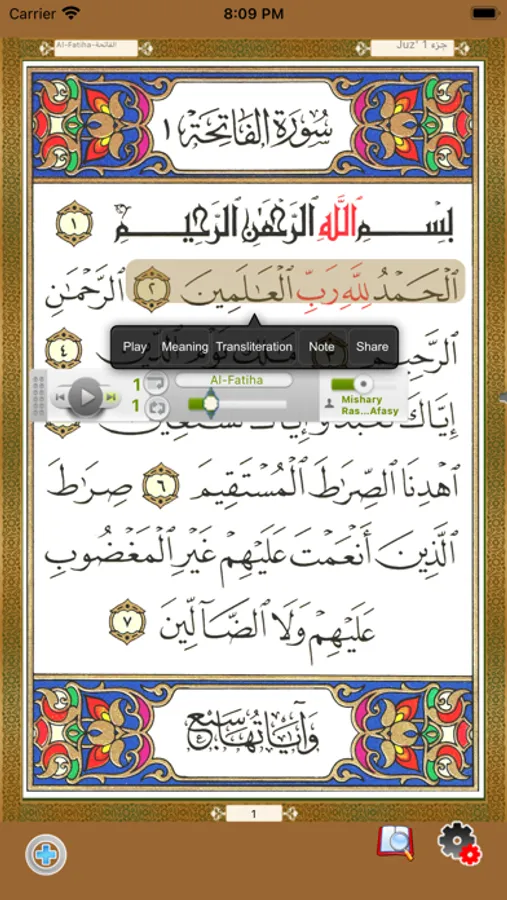 Carrier 8:09 PM
Al-Fatiha-الفاتحة Juz' 1 جزء
سُورَةُ الفَاتِحَةِ ١
بِسْمِ ٱللَّهِ ٱلرَّحْمَٰنِ ٱلرَّحِيمِ ١
ٱلْحَمْدُ لِلَّهِ رَبِّ ٱلْعَالَمِينَ ٢ ٱلرَّحْمَٰنِ
Play Meaning Transliteration Note Share
ٱلرَّحِيمِ مَٰلِكِ يَوْمِ ٱلدِّينِ ٤
1 Al-Fatiha
1 Mishary
Ras...Afasy
إِيَّاكَ نَعْبُدُ وَإِيَّاكَ نَسْتَعِينُ
ٱهْدِنَا ٱلصِّرَاطَ ٱلْمُسْتَقِيمَ ٦ صِرَاطَ
ٱلَّذِينَ أَنْعَمْتَ عَلَيْهِمْ غَيْرِ ٱلْمَغْضُوبِ
عَلَيْهِمْ وَلَا ٱلضَّآلِّينَ ٧
وَآيَاتُهَا سَبْعٌ
1